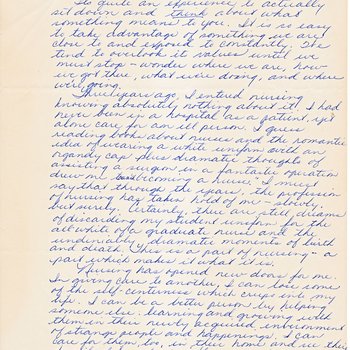 Its quite an experience to actually
sit down and think about what
something means to you. It is so easy
to take advantage of something we are
close to and exposed to constantly. We
tend to overlook its values until we
must stop - wonder where we are, how
we got there, what were doing, and where
were going.
Three years ago, I entered nursing
knowing absolutely nothing about it. I had
never been in a hospital as a patient, yet
alone care for an ill person. I guess
reading books about nurses and the romantic
idea of wearing a white uniform with an
organdy cap plus dramatic thoughts of
assisting a surgeon in a fantastic operation
drew me becoming a nurse. I must
say that through the years, the profession
of nursing has taken hold of me - slowly,
but surely. Certainly, there are still dreams
of discarding my student uniform for the
all white of a graduate nurse and the
undeniably dramatic moments of birth
and death. This is a part of nursing - a
part which makes it what it is.
Nursing has opened new doors for me.
In giving care to another, I can lose some
of the self centerness which creeps into my
life. I can be a better person by helping
someone else: learning and growing with
them in their newly acquired environment
of strange people and happenings. I can
care for them too, in their home and see their